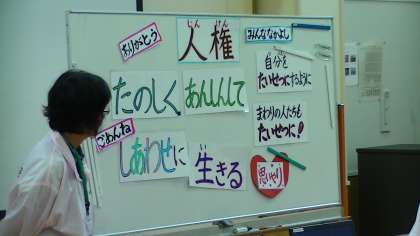 ありがとう
じん けん
人権
みんななかよし
自分を
たいせつにするように
たのしく
あんしんして
まわりの人たちも
たいせつに!
ごめんね
しあわせに
生きる
思いやり